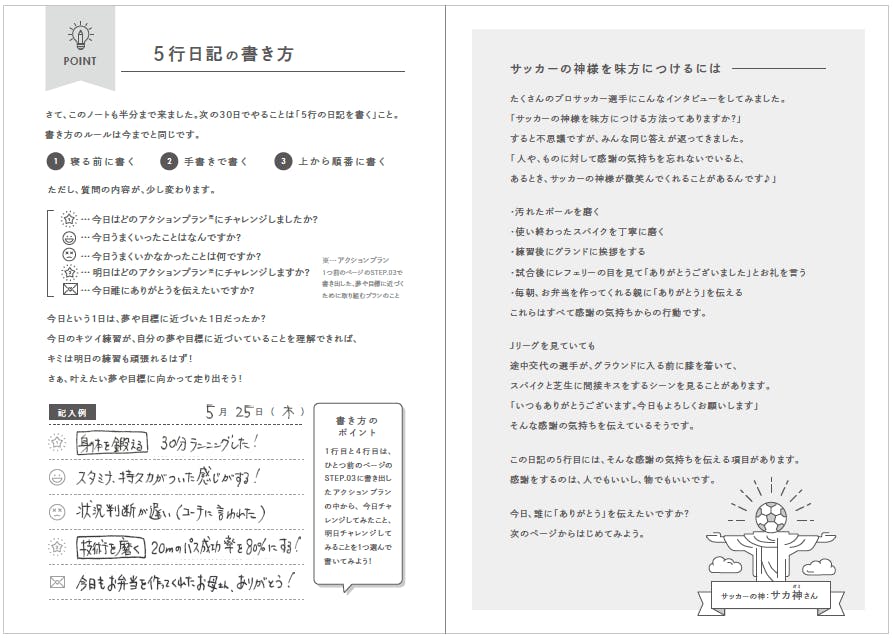 POINT
5行日記の書き方
さて、このノートも半分まで来ました。次の30日でやることは「5行の日記を書く」こと。
書き方のルールは今までと同じです。
1 寝る前に書く 2 手書きで書く 3 上から順番に書く
ただし、質問の内容が、少し変わります。
… 今日はどのアクションプラン※にチャレンジしましたか?
… 今日うまくいったことはなんですか?
… 今日うまくいかなかたことは何ですか?
… 明日はどのアクションプラン※にチャレンジしますか?
… 今日誰にありがとうを伝えたいですか?
※…アクションプラン
1つ前のページのSTEP.03で
書き出した、夢や目標に近づく
ために取り組むプランのこと
今日という1日は、夢や目標に近づいた1日だったか?
今日のキツイ練習が、自分の夢や目標に近づいていることを理解できれば、
キミは明日の練習も頑張れるはず!
さぁ、叶えたい夢や目標に向かって走り出そう!
記入例
5月25日(木)
身体を鍛える 30分ランニングした!
スタミナ、持久力がついた感じがする!
状況判断が遅い(コーチに言われた)
技術を磨く 20mのパス成功率を80%にする!
今日もお弁当を作ってくれたお母さん、ありがとう!
書き方の
ポイント
1行目と4行目は、
ひとつ前のページの
STEP.03に書き出し
たアクションプラン
の中から、今日チャ
レンジしてみたこと、
明日チャレンジして
みることを1つ選んで
書いてみよう!
サッカーの神様を味方につけるには
たくさんのプロサッカー選手にこんなインタビューをしてみました。
「サッカーの神様を味方につける方法ってありますか?」
すると不思議ですが、みんな同じ答えが返ってきました。
「人や、ものに対して感謝の気持ちを忘れないでいると、
あるとき、サッカーの神様が微笑んでくれることがあるんです♪」
・汚れたボールを磨く
・使い終わったスパイクを丁寧に磨く
・練習後にグランドに挨拶をする
・試合後にレフェリーの目を見て「ありがとうございました」とお礼を言う
・毎朝、お弁当を作ってくれる親に「ありがとう」を伝える
これらはすべて感謝の気持ちからの行動です。
Jリーグを見ていても
途中交代の選手が、グラウンドに入る前に膝を着いて、
スパイクと芝生に間接キスをするシーンを見ることがあります。
「いつもありがとうございます。今日もよろしくお願いします」
そんな感謝の気持ちを伝えているそうです。
この日記の5行目には、そんな感謝の気持ちを伝える項目があります。
感謝をするのは、人でもいいし、物でもいいです。
今日、誰に「ありがとう」を伝えたいですか?
次のページからはじめてみよう。
サッカーの神:サカ神さん